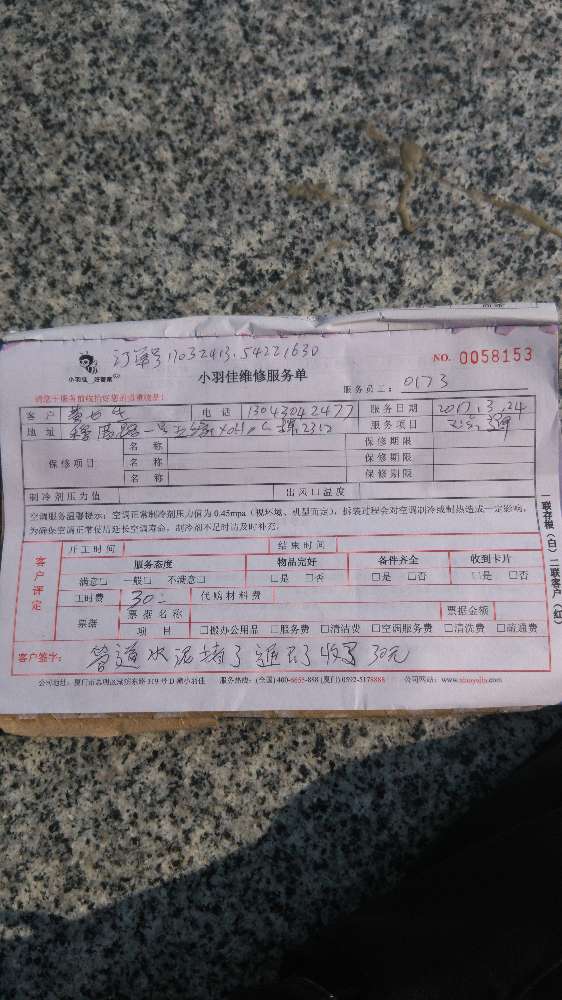 订单号 17032413.54221630
小羽佳 好管家 NO. 0058153
小羽佳维修服务单
服务员工: 0173
请您于服务前收拾好您的贵重物品!
客户 黄 电话 13043042477 服务日期 2017.3.24
地址 服务项目
保修项目 名称 保修期限
名称 保修期限
名称 保修期限
制冷剂压力值 出风口温度
空调服务温馨提示:空调正常制冷剂压力值为0.45mpa(视环境、机型而定),拆装过程会对空调制冷或制热造成一定影响,
为确保空调正常使用延长空调寿命,制冷剂不足时请及时补充。
客户评定 开工时间 结束时间
服务态度 物品完好 备件齐全 收到卡片
满意□ 一般□ 不满意□ □是 □否 □是 □否 □是 □否
工时费 30- 代购材料费
票据 票据名称 票据金额
项目 □搬办公用品 □服务费 □清洁费 □空调服务费 □清洗费 □疏通费
客户签字: 管道水泥堵了 通不了 收了30元
服务热线:(全国)400-6655-888 (厦门)0592-5178888 公司网站:www.xiaoyujia.com
联存根(白) 二联客户(红)